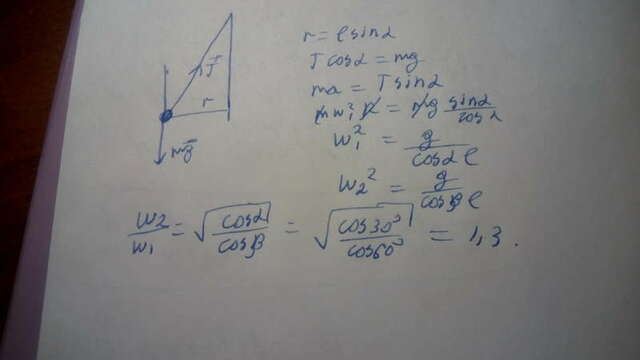 r = l sinα
T cosα = mg
ma = T sinα
T
r
m w₁² r = mg sinα / cosα
w₁² = g / cosα l
mg
w₂² = g / cosβ l
w₂ / w₁ = √(cosα / cosβ) = √(cos30° / cos60°) = 1,3.